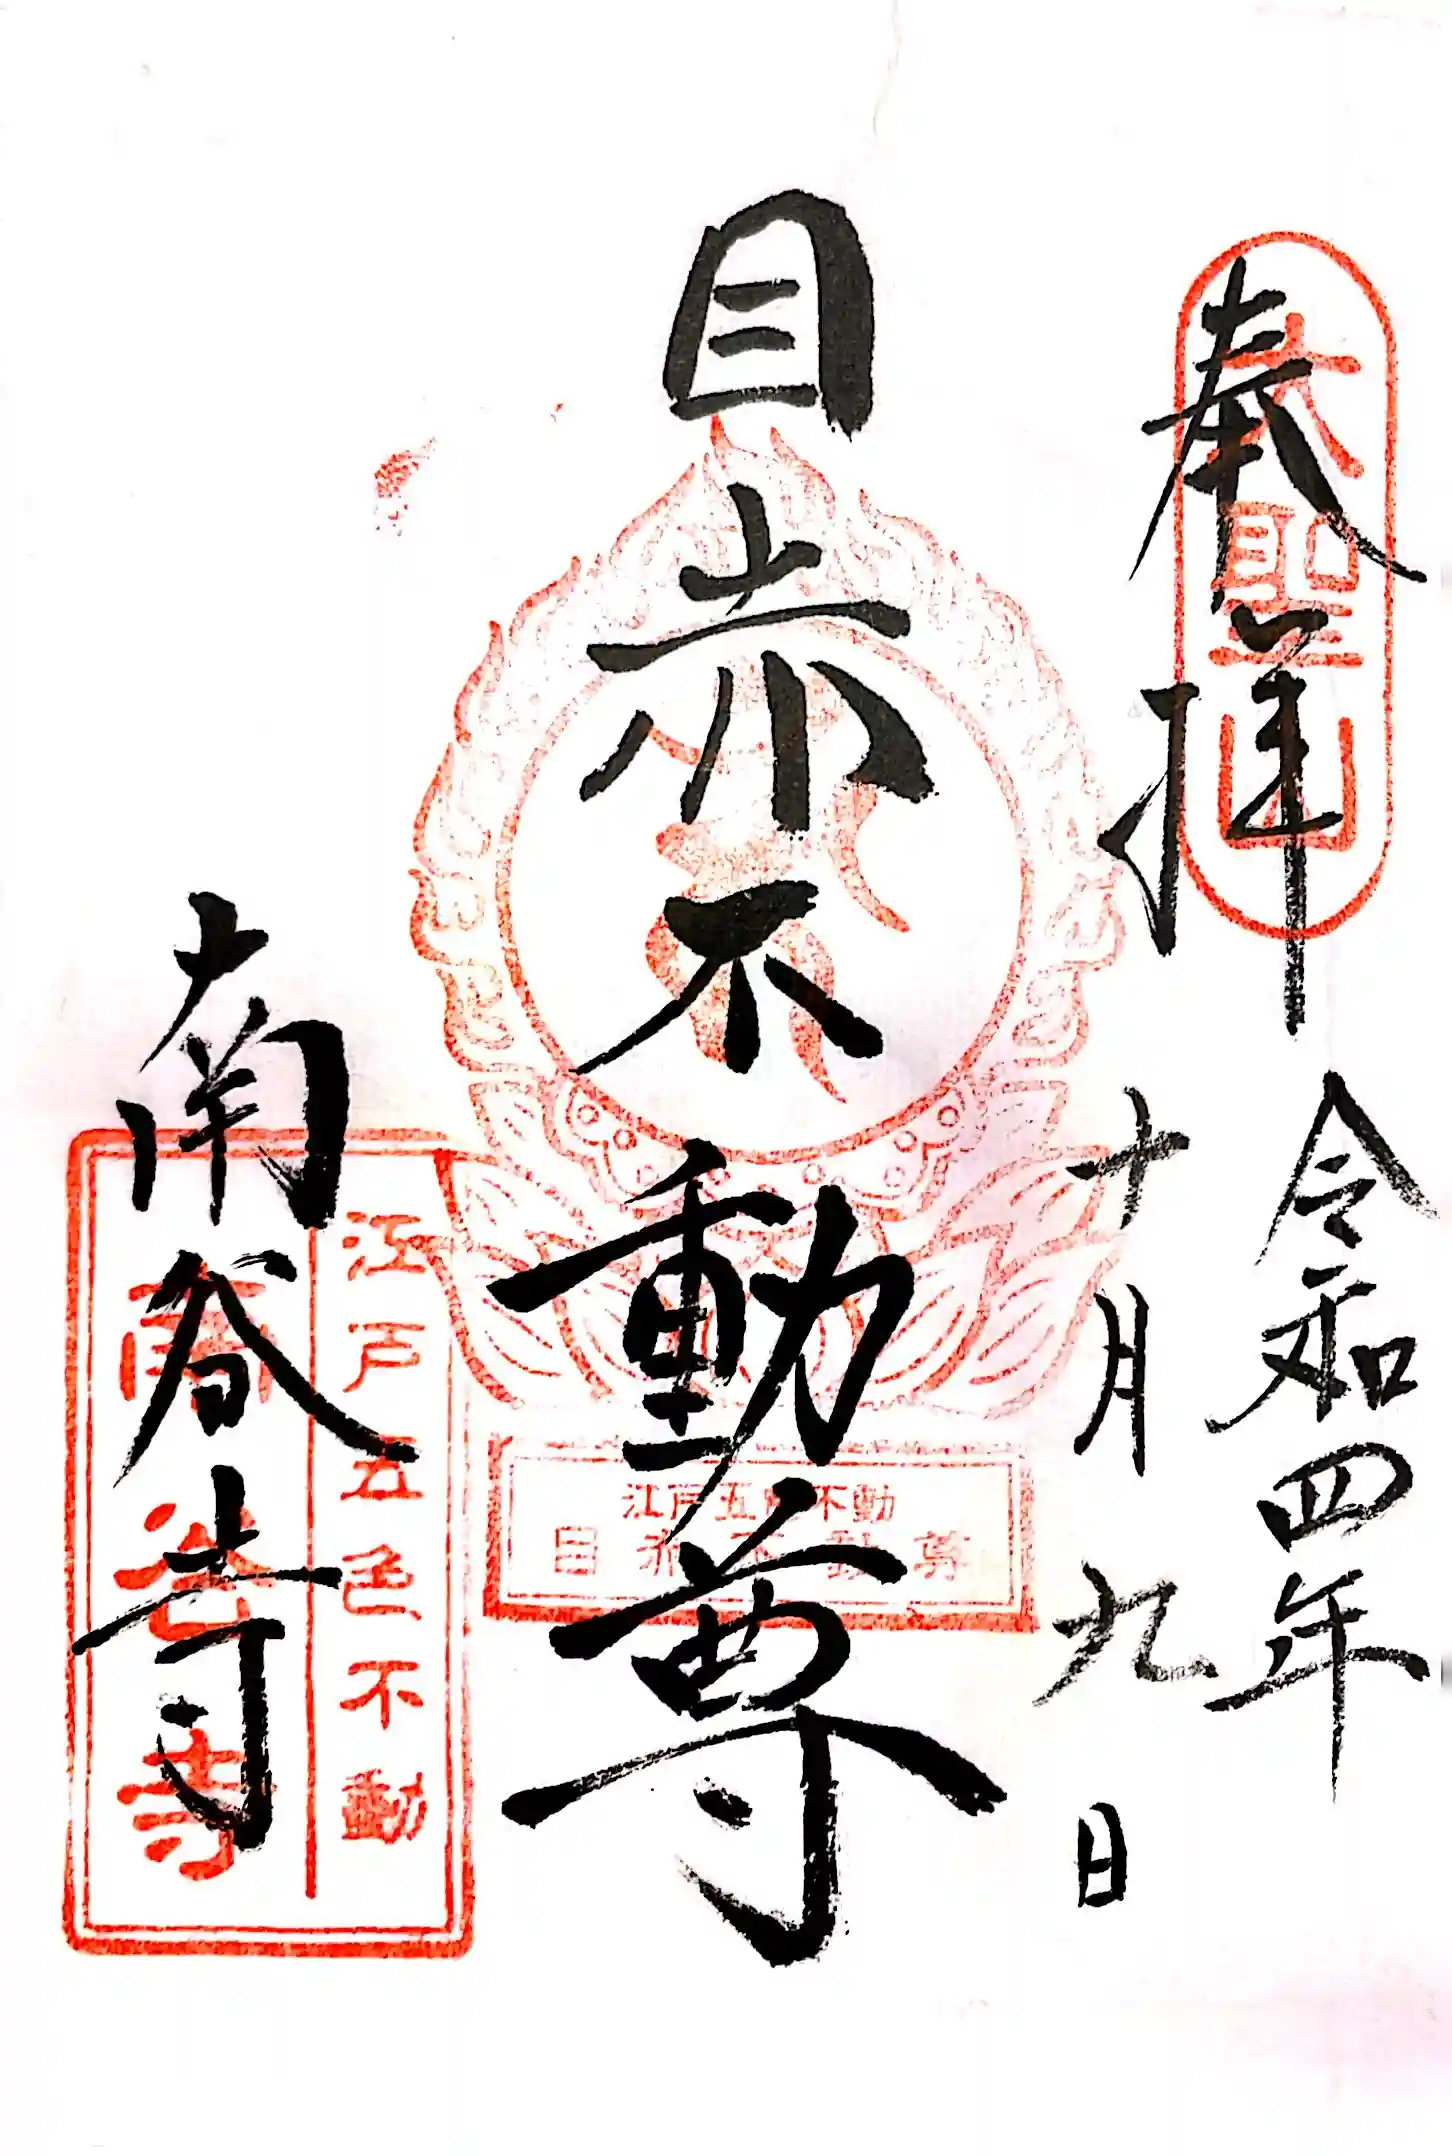 奉拝
大聖山
令和四年
十月九日
目赤不動尊
江戸五色不動
目赤不動尊
南谷寺
江戸五色不動
南谷寺